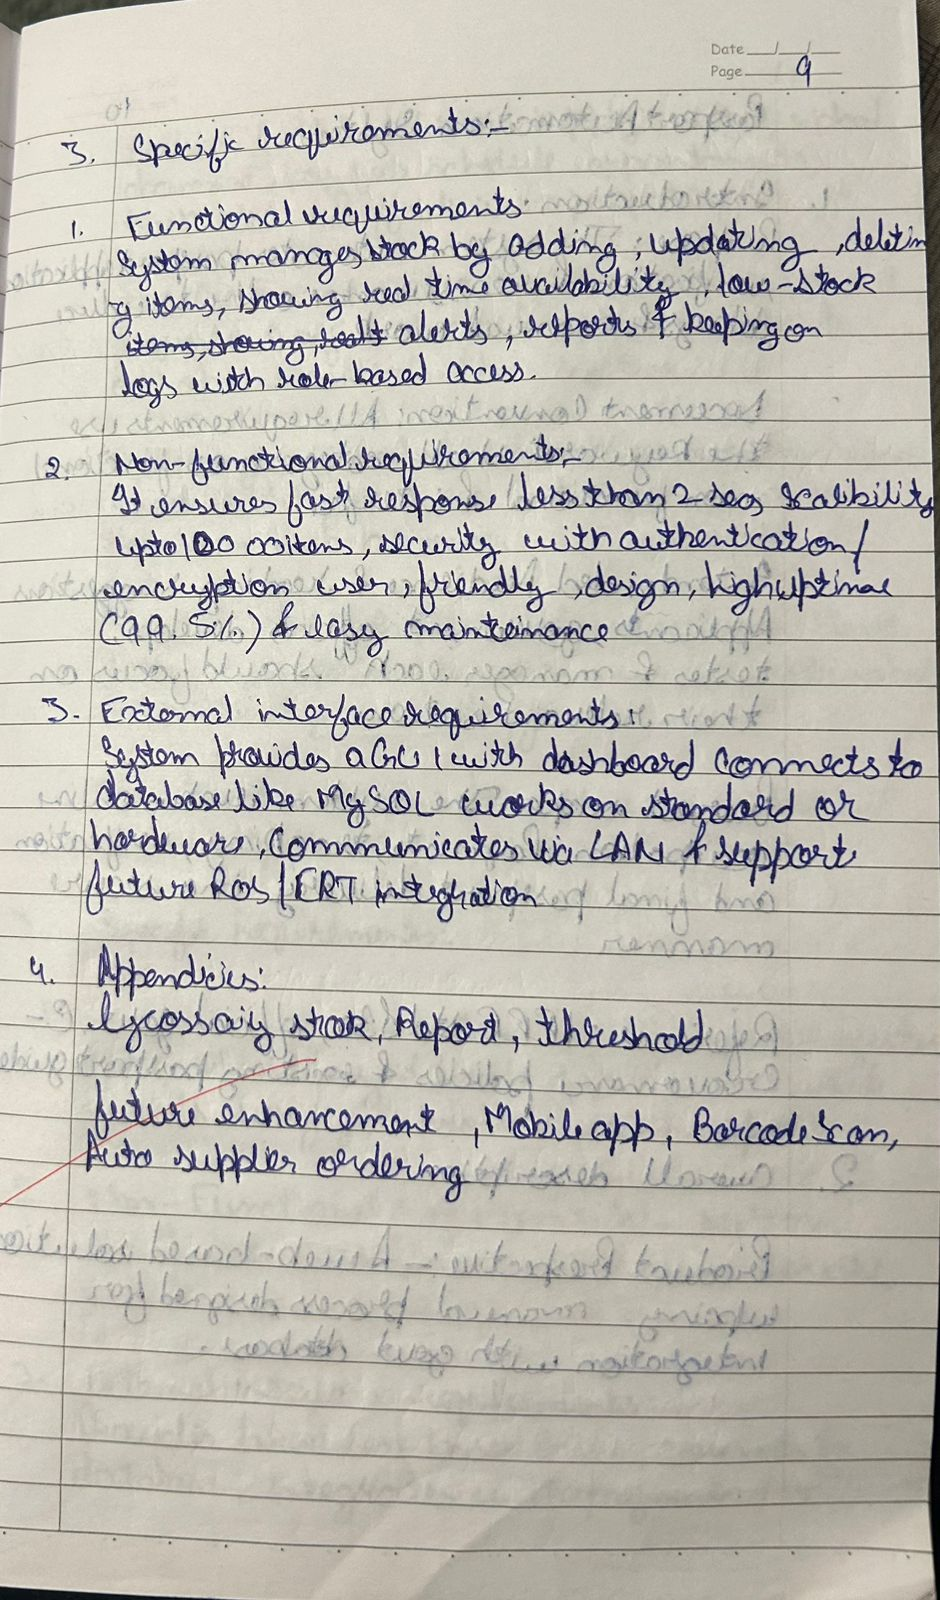 Date __/__/__
Page 9
3. Specific requirements:-
1. Functional requirements.
System manages stock by adding, updating, deletin
g items, showing real time availability, low-stock
items, showing, realt alerts, reports & keeping on
logs with role-based access.
2. Non-functional requirements:-
It ensures fast response less than 2 secs scalibility
upto 100 00 items, security with authentication/
encryption user, friendly, design, high uptimae
(99.5%) & easy mainteinance
3. External interface requirements:
System provides a GUI with dashboard connects to
database like MySQL works on standard or
hardware, communicates via LAN & support
future Ros/ERT integration
4. Appendicies:
stock, Report, threshold
future enhancement, Mobile app, Barcode Scan,
Auto supplier ordering